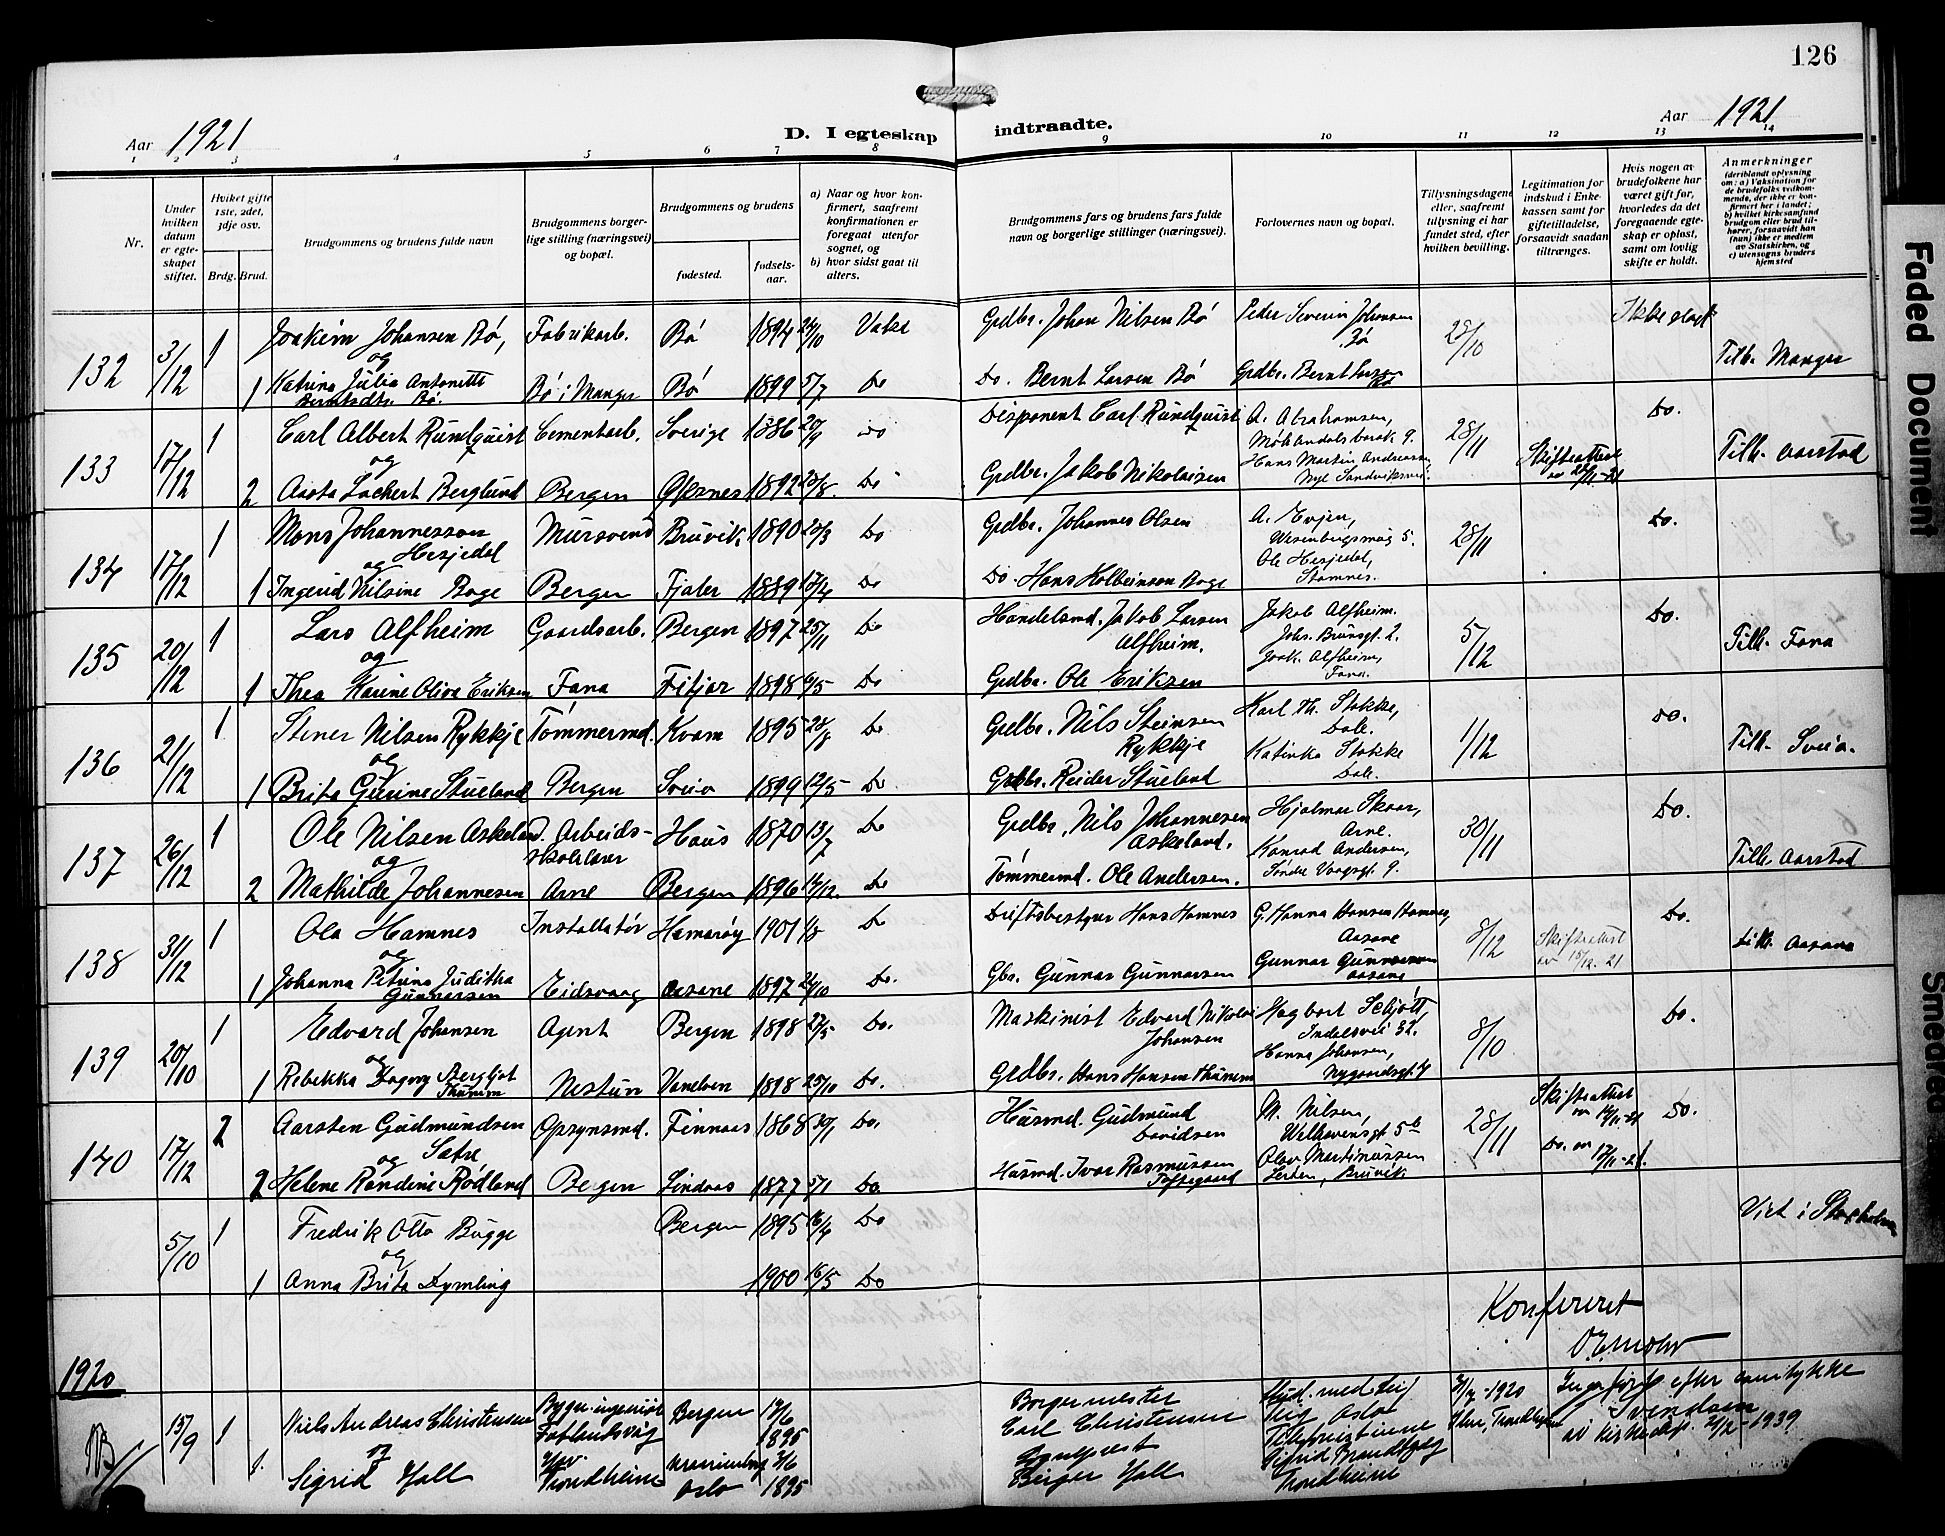 126
Aar 1921
D. I egteskap indtraadte.
Aar 1921
1 2 3 4 5 6 7 8 9 10 11 12 13 14
Nr.
Under hvilken datum er egteskapet stiftet.
Hviket gifte 1ste, 2det, 3dje osv.
Brdg. Brud.
Brudgommens og brudens fulde navn
Brudgommens borgerlige stilling (næringsvei) og bopæl.
Brudgommens og brudens
fødested.
fødselsaar.
a) Naar og hvor konfirmert, saafremt konfirmationen er foregaat utenfor sognet, og
b) hvor sidst gaat til alters.
Brudgommens fars og brudens fars fulde navn og borgerlige stillinger (næringsvei).
Forlovernes navn og bopæl.
Tillysningsdagene eller, saafremt tillysning ei har fundet sted, efter hvilken bevilling.
Legitimation for indskud i Enkekassen samt for giftetilladelse, forsaavidt saadan tiltrænges.
Hvis nogen av brudefolkene har været gift før, hvorledes da det foregaaende egteskap er opløst, samt om lovlig skifte er holdt.
Anmerkninger
(deriblandt oplysning om: a) Vaksination for de brudefolks vedkommende, der ikke er konfirmert her i landet; b) hvilket kirkesamfund brudgom eller brud tilhører, forsaavidt han (hun) ikke er medlem av Statskirken, og c) utensogns bruders hjemsted
132 3/12 1 Joakim Johansen Bø, Fabrikarb. Bø 1894 24/10 Vaks Grdbr. Johan Nilsen Bø Peder Severin Johansen Bø 28/10 Ikke slegt Tilh. Manger
og
1 Katrina Julia Antonette Berntsdtr. Bø. Bø i Manger Bø 1899 5/7 Do Do. Bernt Larsen Bø Grdbr. Bernt Larsen Bø
133 17/12 1 Carl Albert Rundquist Cementarb. Sverige 1886 20/9 Do Disponent Carl Rundquist A. Abrahamsen, Møhlendalsbarak 9. 28/11 Skifteattest Do. Tilh. Aarstad
og
2 Aasta Lockert Berglund Bergen Øksnes 1892 Do Grdbr. Jakob Nikolaisen Hans Martin Andreassen Nye Sandviksvei.
134 17/12 1 Mons Johannesson Hesjedal Mursvend Bruvik 1890 20/3 Do Grdbr. Johannes Olsen A. Evjen, Wesenbergsmug 5. 28/11 Do.
og
1 Ingerid Nilsine Boge Bergen Fjaler 1889 Do Do. Hans Kolbeinson Boge Ole Hesjedal, Stamnes.
135 20/12 1 Lars Alfheim Gaardsarb. Bergen 1897 25/11 Do Handelsmd. Jakob Larsen Alfheim. Jakob Alfheim. Johs. Brunsgt. 2. 5/12 Do. Tilh. Fana
og
1 Thea Karine Oliva Eriksen Fana Fitjar 1898 6/5 Do Grdbr. Ole Eriksen Joak. Alfheim, Fana.
136 21/12 1 Stener Nilsen Rykkje Tømmermd. Kvam 1895 28/8 Do Grdbr. Nils Steinsen Rykkje Karl Th. Stokke, Dale. 1/12 Do. Tilh. Sveio.
og
1 Brita Gurine Stueland Bergen Sveio 1899 12/5 Do Grdbr. Reider Stueland Katinka Stokke Dale.
137 26/12 1 Ole Nilsen Askeland Arbeidsskolelærer Haus 1870 13/7 Do Grdbr. Nils Johannesen Askeland. Hjalmar Skaar, Arne. 30/11 Do. Tilh. Aarstad
og
2 Mathilde Johannesen Arne Bergen 1896 Do Tømmermd. Ole Andersen. Konrad Andersen, Søndre Vaagsgt. 9.
138 31/12 1 Ola Hamnes Installatør Hamarøy 1901 1/8 Do Driftsbestyrer Hans Hamnes G. Hanna Hansen Hamnes, Aasane 8/12 Skifteattest av 15/12. 21 Do. Tilh. Aasane
og
1 Johanna Petrina Juditha Gunnarsen Eidsvaag Aasane 1897 24/10 Do. Gbr. Gunnar Gunnarsen Gunnar Gunnarsen Aasane
139 20/10 1 Edvard Johansen Agent Bergen 1898 27/5 Do. Maskinist Edvard Nikolai Johansen Hagbart Schjøtt, Indalsvei 32. 8/10 Do.
og
1 Rebekka Dagny Bergljot Thunem Nestun Vanelven 1898 25/10 Do. Grdbr. Hans Hansen Thunem Hanna Johansen, Nygaardsgt.
140 17/12 2 Aarsten Gudmundsen Sætre Opsynsmd. Finnaas 1868 30/1 Do. Husmd. Gudmund Davidsen M. Nilsen, Welhavensgt. 5b 28/11 Skifteattest av 14/11-21 Do.
og
2 Helene Randine Rødland Bergen Lindaas 1877 5/1 Do. Husmd. Ivar Rasmussen Toftegaard Olav Martinussen Leiren, Bruvik Do. av 17/11-21.
5/10 1 Fredrik Otto Bugge Bergen 1895 16/4 Do Viet i Stockholm
og
1 Anna Brita Dymling 1900 16/5 Do
Konfereret
O. E. Mohr
1920
NB 15/9 1 Niels Andreas Christensen Bygn. ingeniør Bergen 17/6 1895 Borgermester Carl Christensen Stud. med. Leif Oslo 1920 Inføjet efter samtykke av kirkedep. 2/2-1939. Svendsen
1. Sigrid Hall Trondheim Oslo 2/6 1895 Sogneprest Birger Hall Sigrid Trondheim
Faded Document
Smeared